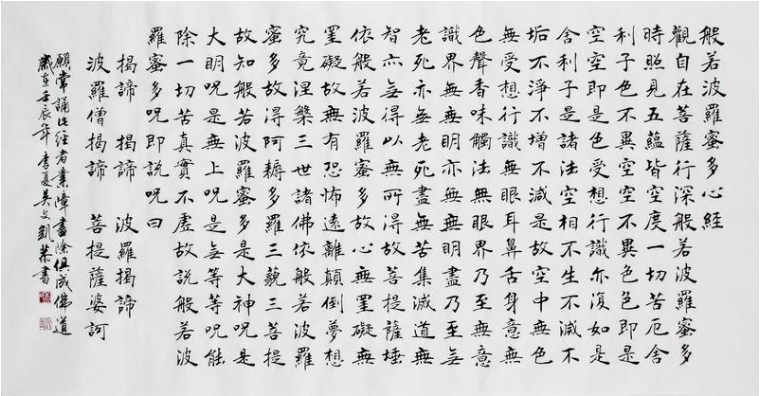 般若波羅蜜多心經
觀自在菩薩行深般若波羅蜜多
時照見五蘊皆空度一切苦厄舍
利子色不異空空不異色色即是
空空即是色受想行識亦復如是
舍利子是諸法空相不生不滅不
垢不淨不增不減是故空中無色
無受想行識無眼耳鼻舌身意無
色聲香味觸法無眼界乃至無意
識界無無明亦無無明盡乃至無
老死亦無老死盡無苦集滅道無
智亦無得以無所得故菩提薩埵
依般若波羅蜜多故心無罣礙無
罣礙故無有恐怖遠離顛倒夢想
究竟涅槃三世諸佛依般若波羅
蜜多故得阿耨多羅三藐三菩提
故知般若波羅蜜多是大神呪是
大明呪是無上呪是無等等呪能
除一切苦真實不虛故說般若波
羅蜜多呪即說呪曰
揭諦 揭諦 波羅揭諦
波羅僧揭諦 菩提薩婆訶
願常誦此經者業障盡除俱成佛道
歲在壬辰年 夏 書